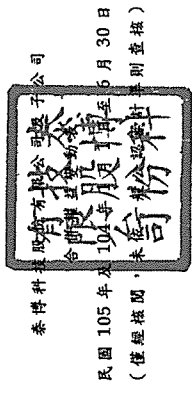 泰博科技股份有限公司及子公司
合併權益變動表
民國 105 年及 104 年 1 月 1 日至 6 月 30 日
（僅經核閱，未依一般公認審計準則查核）